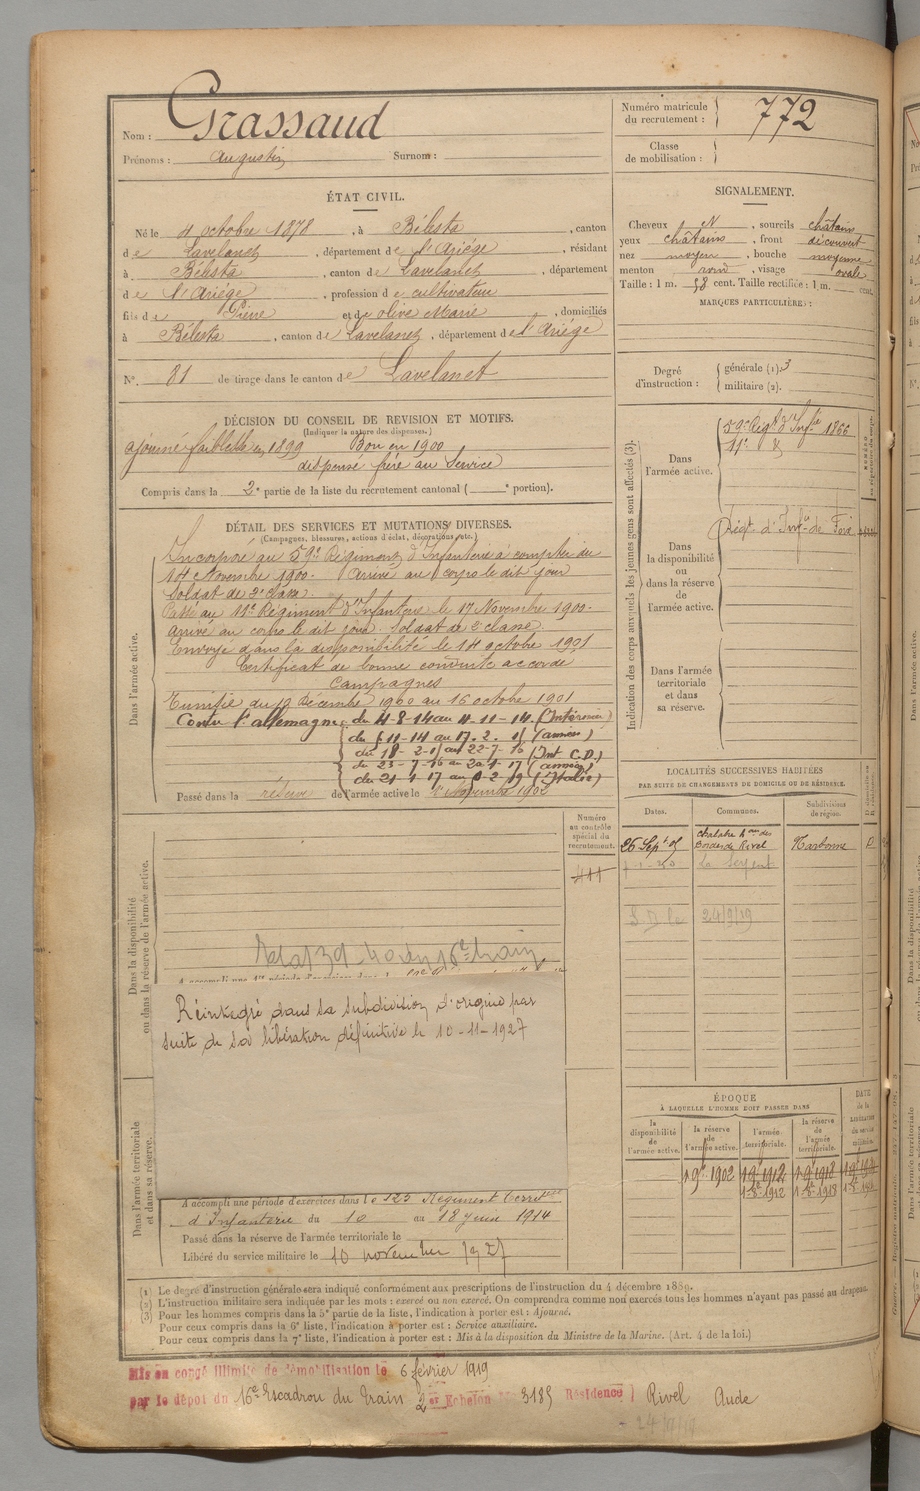 Nom : Grassaud
Prénoms : Augustin Surnom :
Numéro matricule du recrutement : 772
Classe de mobilisation :
ÉTAT CIVIL.
Né le 4 octobre 1878, à Bélesta, canton
de Lavelanet, département de l'Ariége, résidant
à Bélesta, canton de Lavelanet, département
de l'Ariége, profession de cultivateur
fils de Pierre et de Olive Marie, domiciliés
à Bélesta, canton de Lavelanet, département de l'Ariége
N°. 81 de tirage dans le canton de Lavelanet
SIGNALEMENT.
Cheveux N, sourcils châtain
yeux châtains, front découvert
nez moyen, bouche moyenne
menton rond, visage ovale
Taille : 1 m. 58 cent. Taille rectifiée : 1 m. cent.
MARQUES PARTICULIÈRES :
Degré d'instruction : générale (1). 3
militaire (2).
DÉCISION DU CONSEIL DE REVISION ET MOTIFS.
(Indiquer la nature des dispenses.)
ajourné faiblesse en 1899 Bon en 1900
dispensé frère au Service
Compris dans la 2e partie de la liste du recrutement cantonal ( e portion).
DÉTAIL DES SERVICES ET MUTATIONS DIVERSES.
(Campagnes, blessures, actions d'éclat, décorations, etc.)
Dans l'armée active.
Incorporé au 59e Régiment d'Infanterie à compter du
14 Novembre 1900. Arrivé au corps le dit jour
Soldat de 2e classe.
Passé au 11e Régiment d'Infanterie le 17 Novembre 1900.
Arrivé au corps le dit jour. Soldat de 2e classe.
Envoyé dans la disponibilité le 14 octobre 1901
Certificat de bonne conduite accordé
Campagnes
Tunisie du 12 Décembre 1900 au 16 octobre 1901
Contre l'allemagne : du 4-8-14 au 4-11-14. (Intérieur)
du 5-11-14 au 17-2- (armées)
du 18-2- au 22-7-16 (Int C.D.)
du 23-7-16 au 20-4-17 (armées)
du 21-4-17 au 2-19 (Italie)
Passé dans la réserve de l'armée active le 1er Novembre 1902
Indication des corps auxquels les jeunes gens sont affectés (3).
Dans l'armée active. 59e Régt d'Infie 1866
11e
Dans la disponibilité ou dans la réserve de l'armée active.
Régt d'Infie de Foix
Dans l'armée territoriale et dans sa réserve.
LOCALITÉS SUCCESSIVES HABITÉES
PAR SUITE DE CHANGEMENTS DE DOMICILE OU DE RÉSIDENCE.
Dates. Communes. Subdivisions de région.
26 Sept 05 Chalabre hau des Bordes de Rivel Narbonne D
24/9/19
Numéro au contrôle spécial du recrutement.
Dans la disponibilité ou dans la réserve de l'armée active.
Réintégré dans sa subdivision d'origine par
suite de sa libération définitive le 10-11-1927
Dans l'armée territoriale et dans sa réserve.
A accompli une période d'exercices dans le 123 Régiment Territal
d'Infanterie du 10 au 18 juin 1914
Passé dans la réserve de l'armée territoriale le
Libéré du service militaire le 10 novembre 1927
ÉPOQUE
À LAQUELLE L'HOMME DOIT PASSER DANS
la disponibilité de l'armée active.
la réserve de l'armée active.
l'armée territoriale.
la réserve de l'armée territoriale.
DATE de la LIBÉRATION du service militaire.
1 9e 1902 1 9e 1912 1 9e 1918
1-8e-1912 1-8e-1918
(1) Le degré d'instruction générale sera indiqué conformément aux prescriptions de l'instruction du 4 décembre 1889.
(2) L'instruction militaire sera indiquée par les mots : exercé ou non exercé. On comprendra comme non exercés tous les hommes n'ayant pas passé au drapeau.
(3) Pour les hommes compris dans la 5e partie de la liste, l'indication à porter est : Ajourné.
Pour ceux compris dans la 6e liste, l'indication à porter est : Service auxiliaire.
Pour ceux compris dans la 7e liste, l'indication à porter est : Mis à la disposition du Ministre de la Marine. (Art. 4 de la loi.)
Mis en congé illimité de démobilisation le 6 février 1919
par le dépôt du 16e Escadron du Train 2er Echelon N° 3185 Résidence Rivel Aude